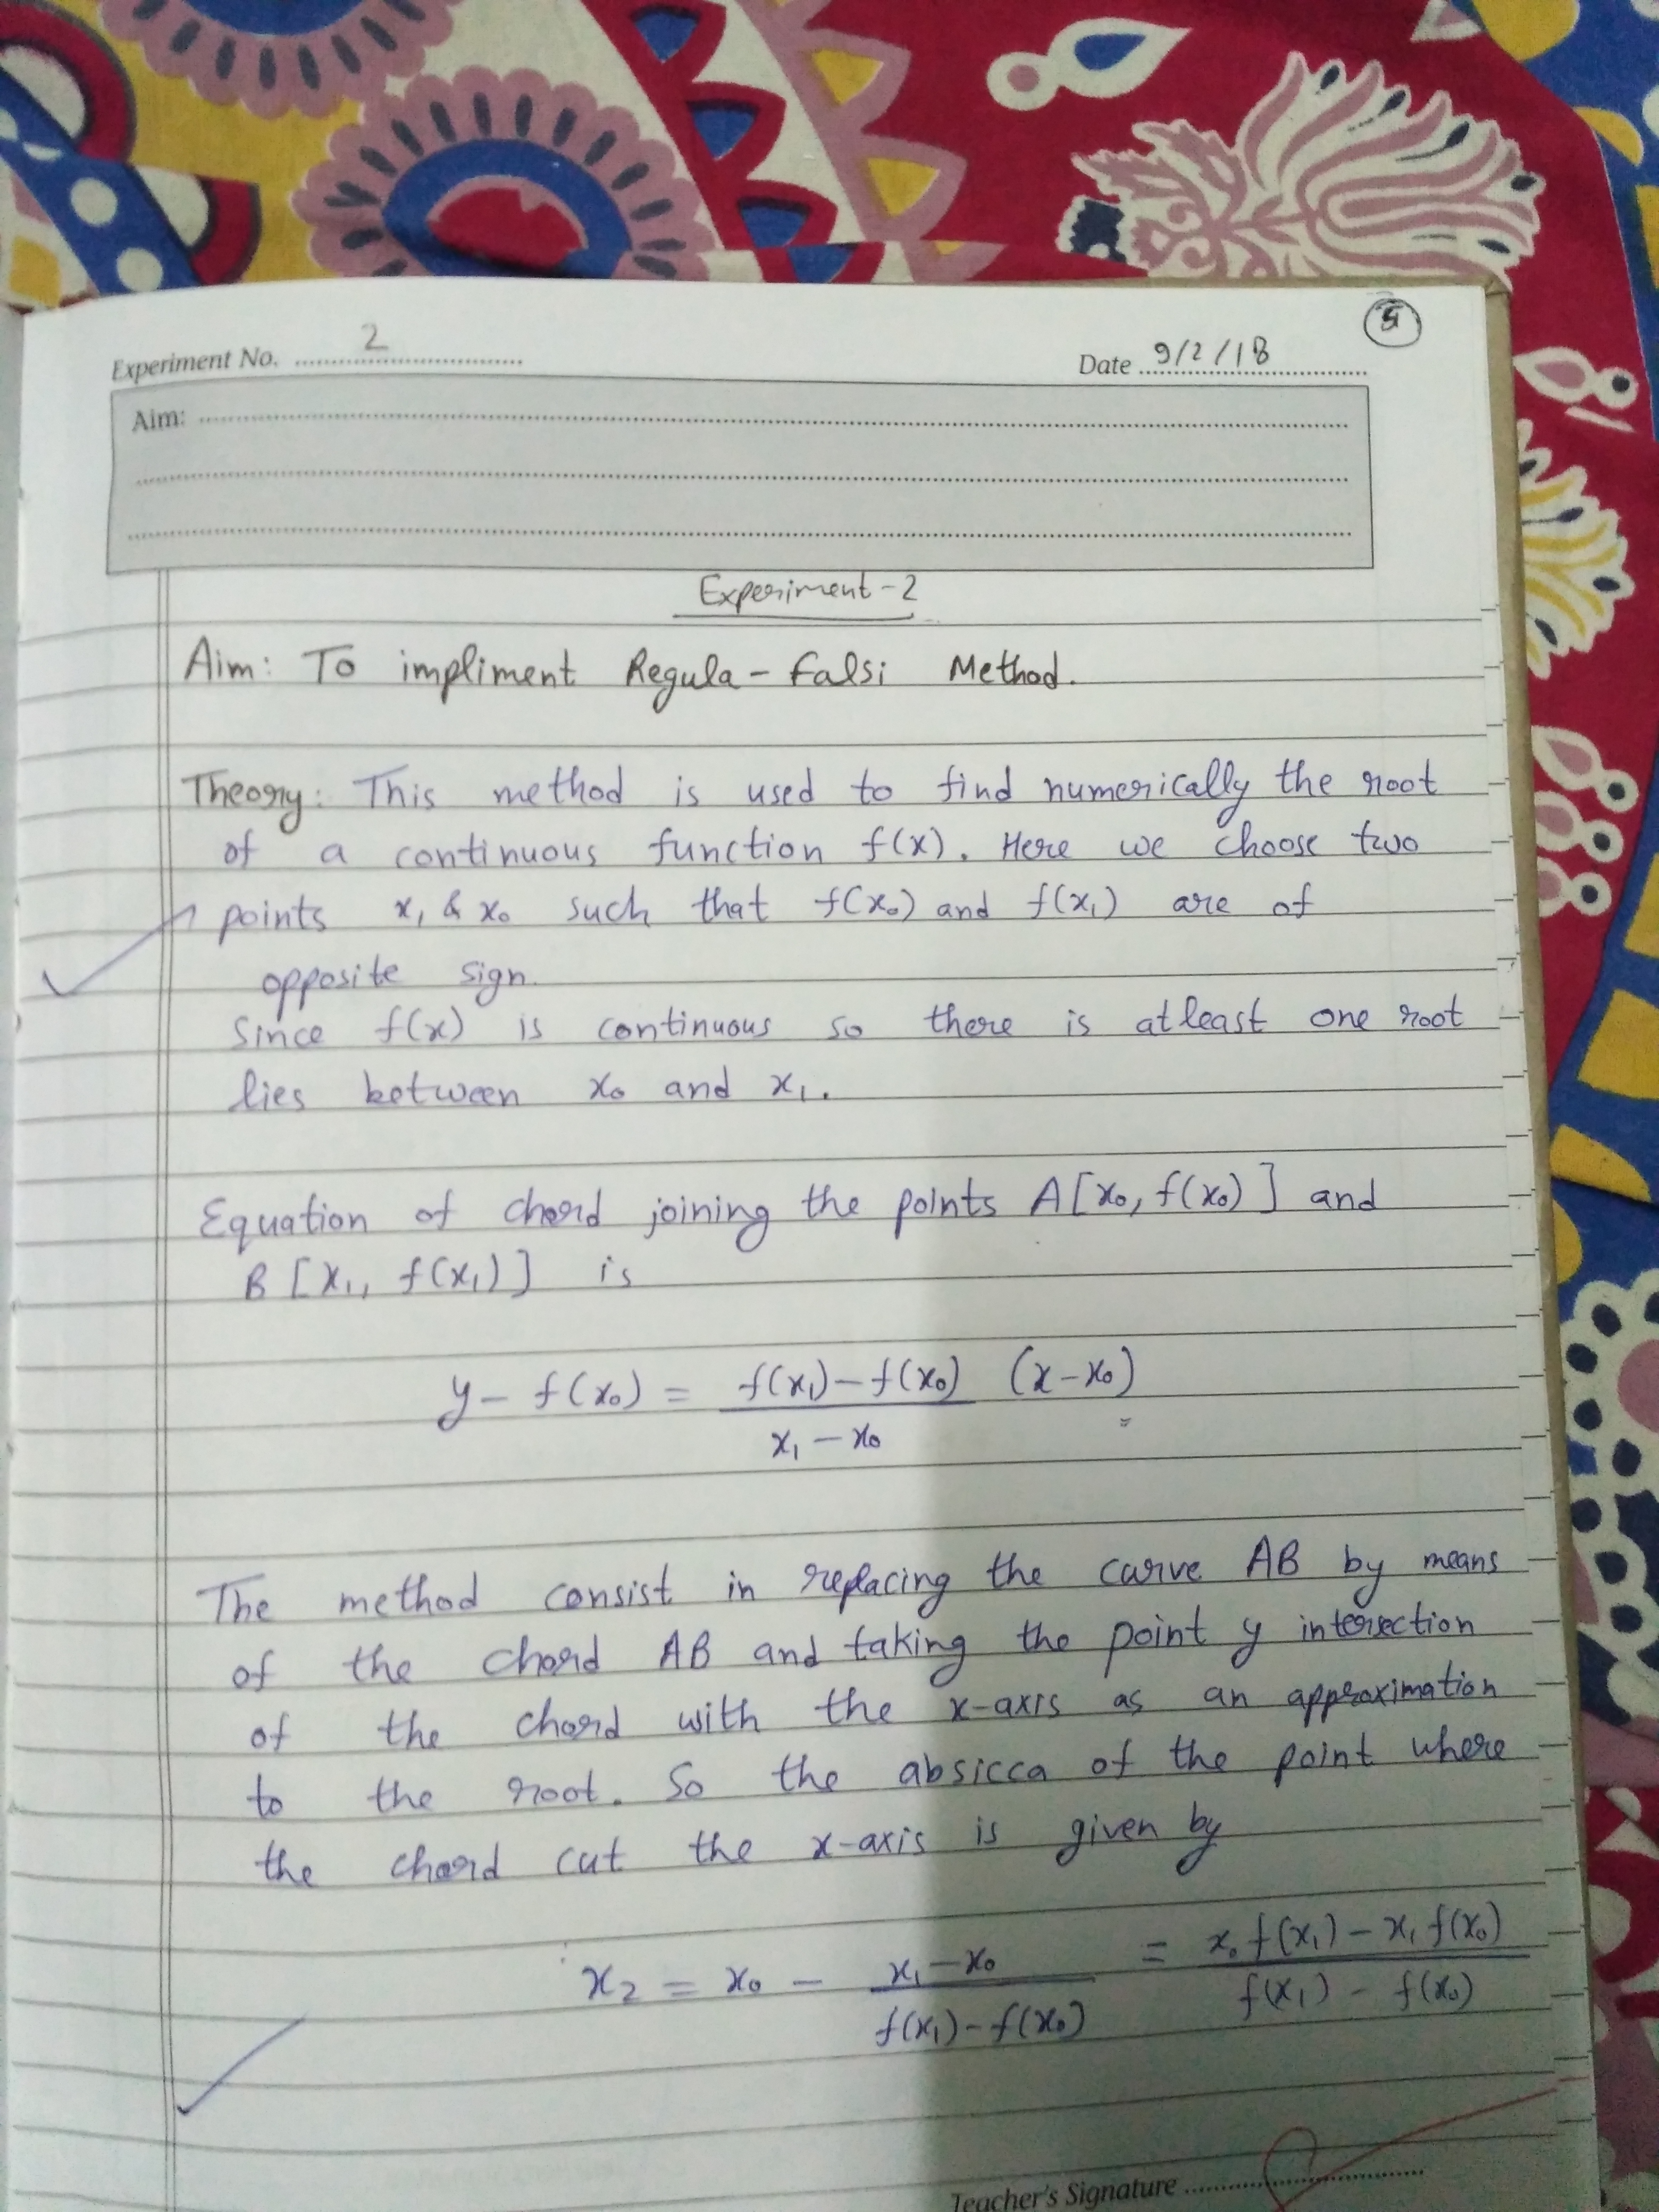 5
Experiment No. 2
Date 9/2/18
Aim:
Experiment-2
Aim: To impliment Regula-falsi Method.
Theory: This method is used to find numerically the root
of a continuous function f(x). Here we choose two
points x₁ & x₀ such that f(x₀) and f(x₁) are of
opposite sign.
Since f(x) is continuous so there is atleast one root
lies between x₀ and x₁.
Equation of chord joining the points A[x₀, f(x₀)] and
B[x₁, f(x₁)] is
y - f(x₀) = f(x₁) - f(x₀) / x₁ - x₀ (x - x₀)
The method consist in replacing the curve AB by means
of the chord AB and taking the point y intersection
of the chord with the x-axis as an approximation
to the root. So the absicca of the point where
the chord cut the x-axis is given by
x₂ = x₀ - x₁ - x₀ / f(x₁) - f(x₀) = x₀ f(x₁) - x₁ f(x₀) / f(x₁) - f(x₀)
Teacher's Signature